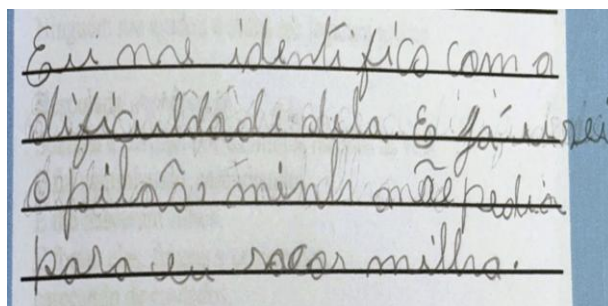 Eu nos identifico com a
dificuldade dela E já usei
O pilão minh mãe pedia
para eu socar milho.